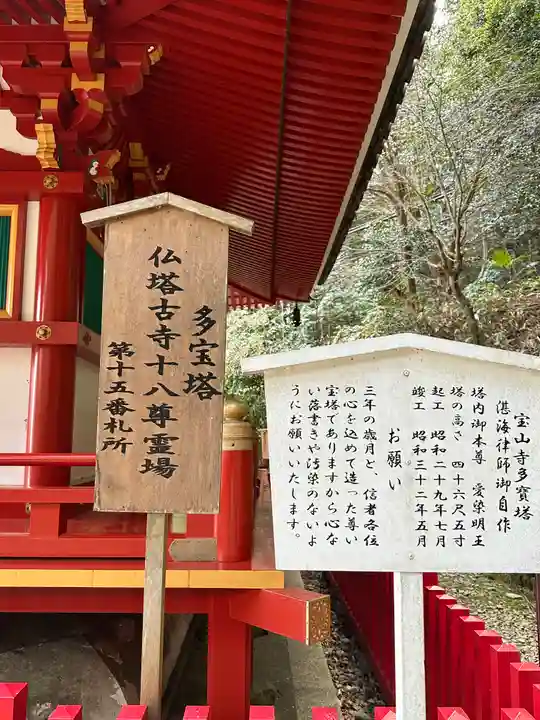 多宝塔
仏塔古寺十八尊霊場
第十五番札所
宝山寺多寳塔
湛海律師御自作
塔内御本尊 愛染明王
塔の高さ 四十六尺五寸
起工 昭和二十九年七月
竣工 昭和三十二年五月
お願い
三年の歳月と、信者各位
の心を込めて造った尊い
宝塔でありますから心な
い落書きや汚染のないよ
うにお願いいたします。